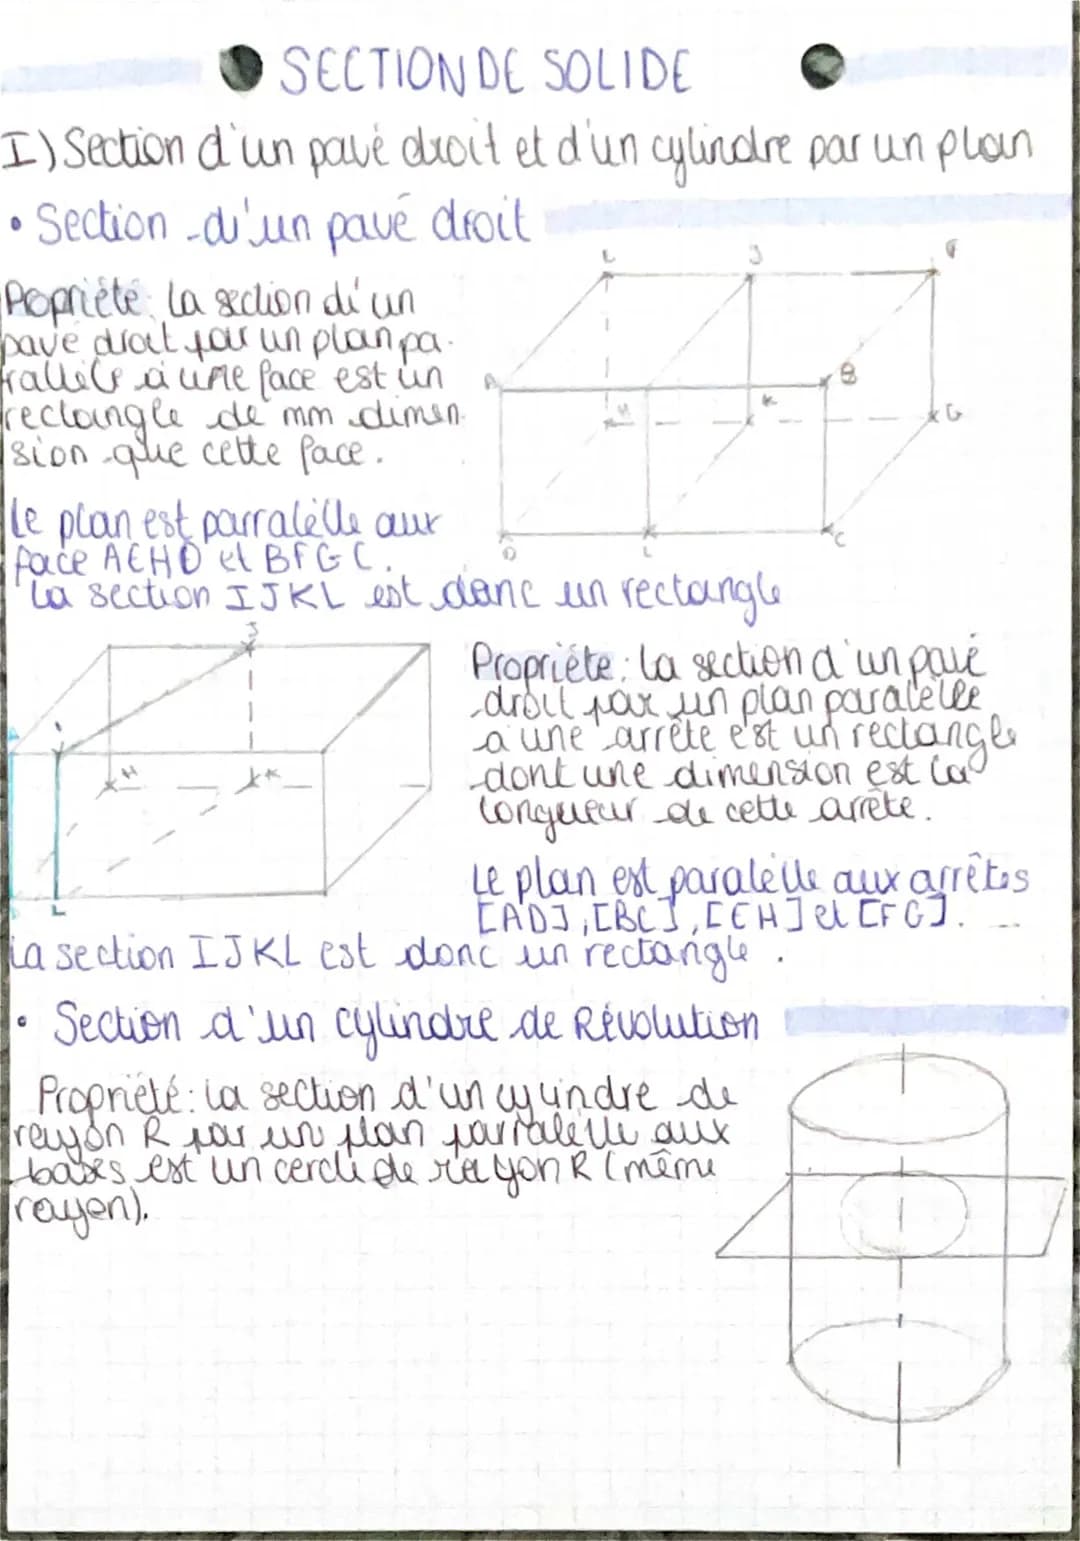 SECTION DE SOLIDE
I) Section d'un pavé droit et d'un cylindre par un plan
• Section d'un pavé droit
Popriété: la section d'un
pavé droit par un plan pa-
rallèle à une face est un
rectangle de mm dimen-
sion que cette face.
E J F
A B
H K G
D L C
le plan est parralèlle aux
face AEHD et BFGC.
la section IJKL est donc un rectangle
J
Propriété: la section d'un pavé
droit par un plan paralèlle
à une arrête est un rectangle
dont une dimension est la
longueur de cette arrête.
A I
H K
L
Le plan est paralèlle aux arrêtes
[AD], [BC], [EH] et [FG].
la section IJKL est donc un rectangle.
• Section d'un cylindre de Révolution
Propriété: la section d'un cylindre de
rayon R par un plan parralèlle aux
bases est un cercle de rayon R (même
rayon).